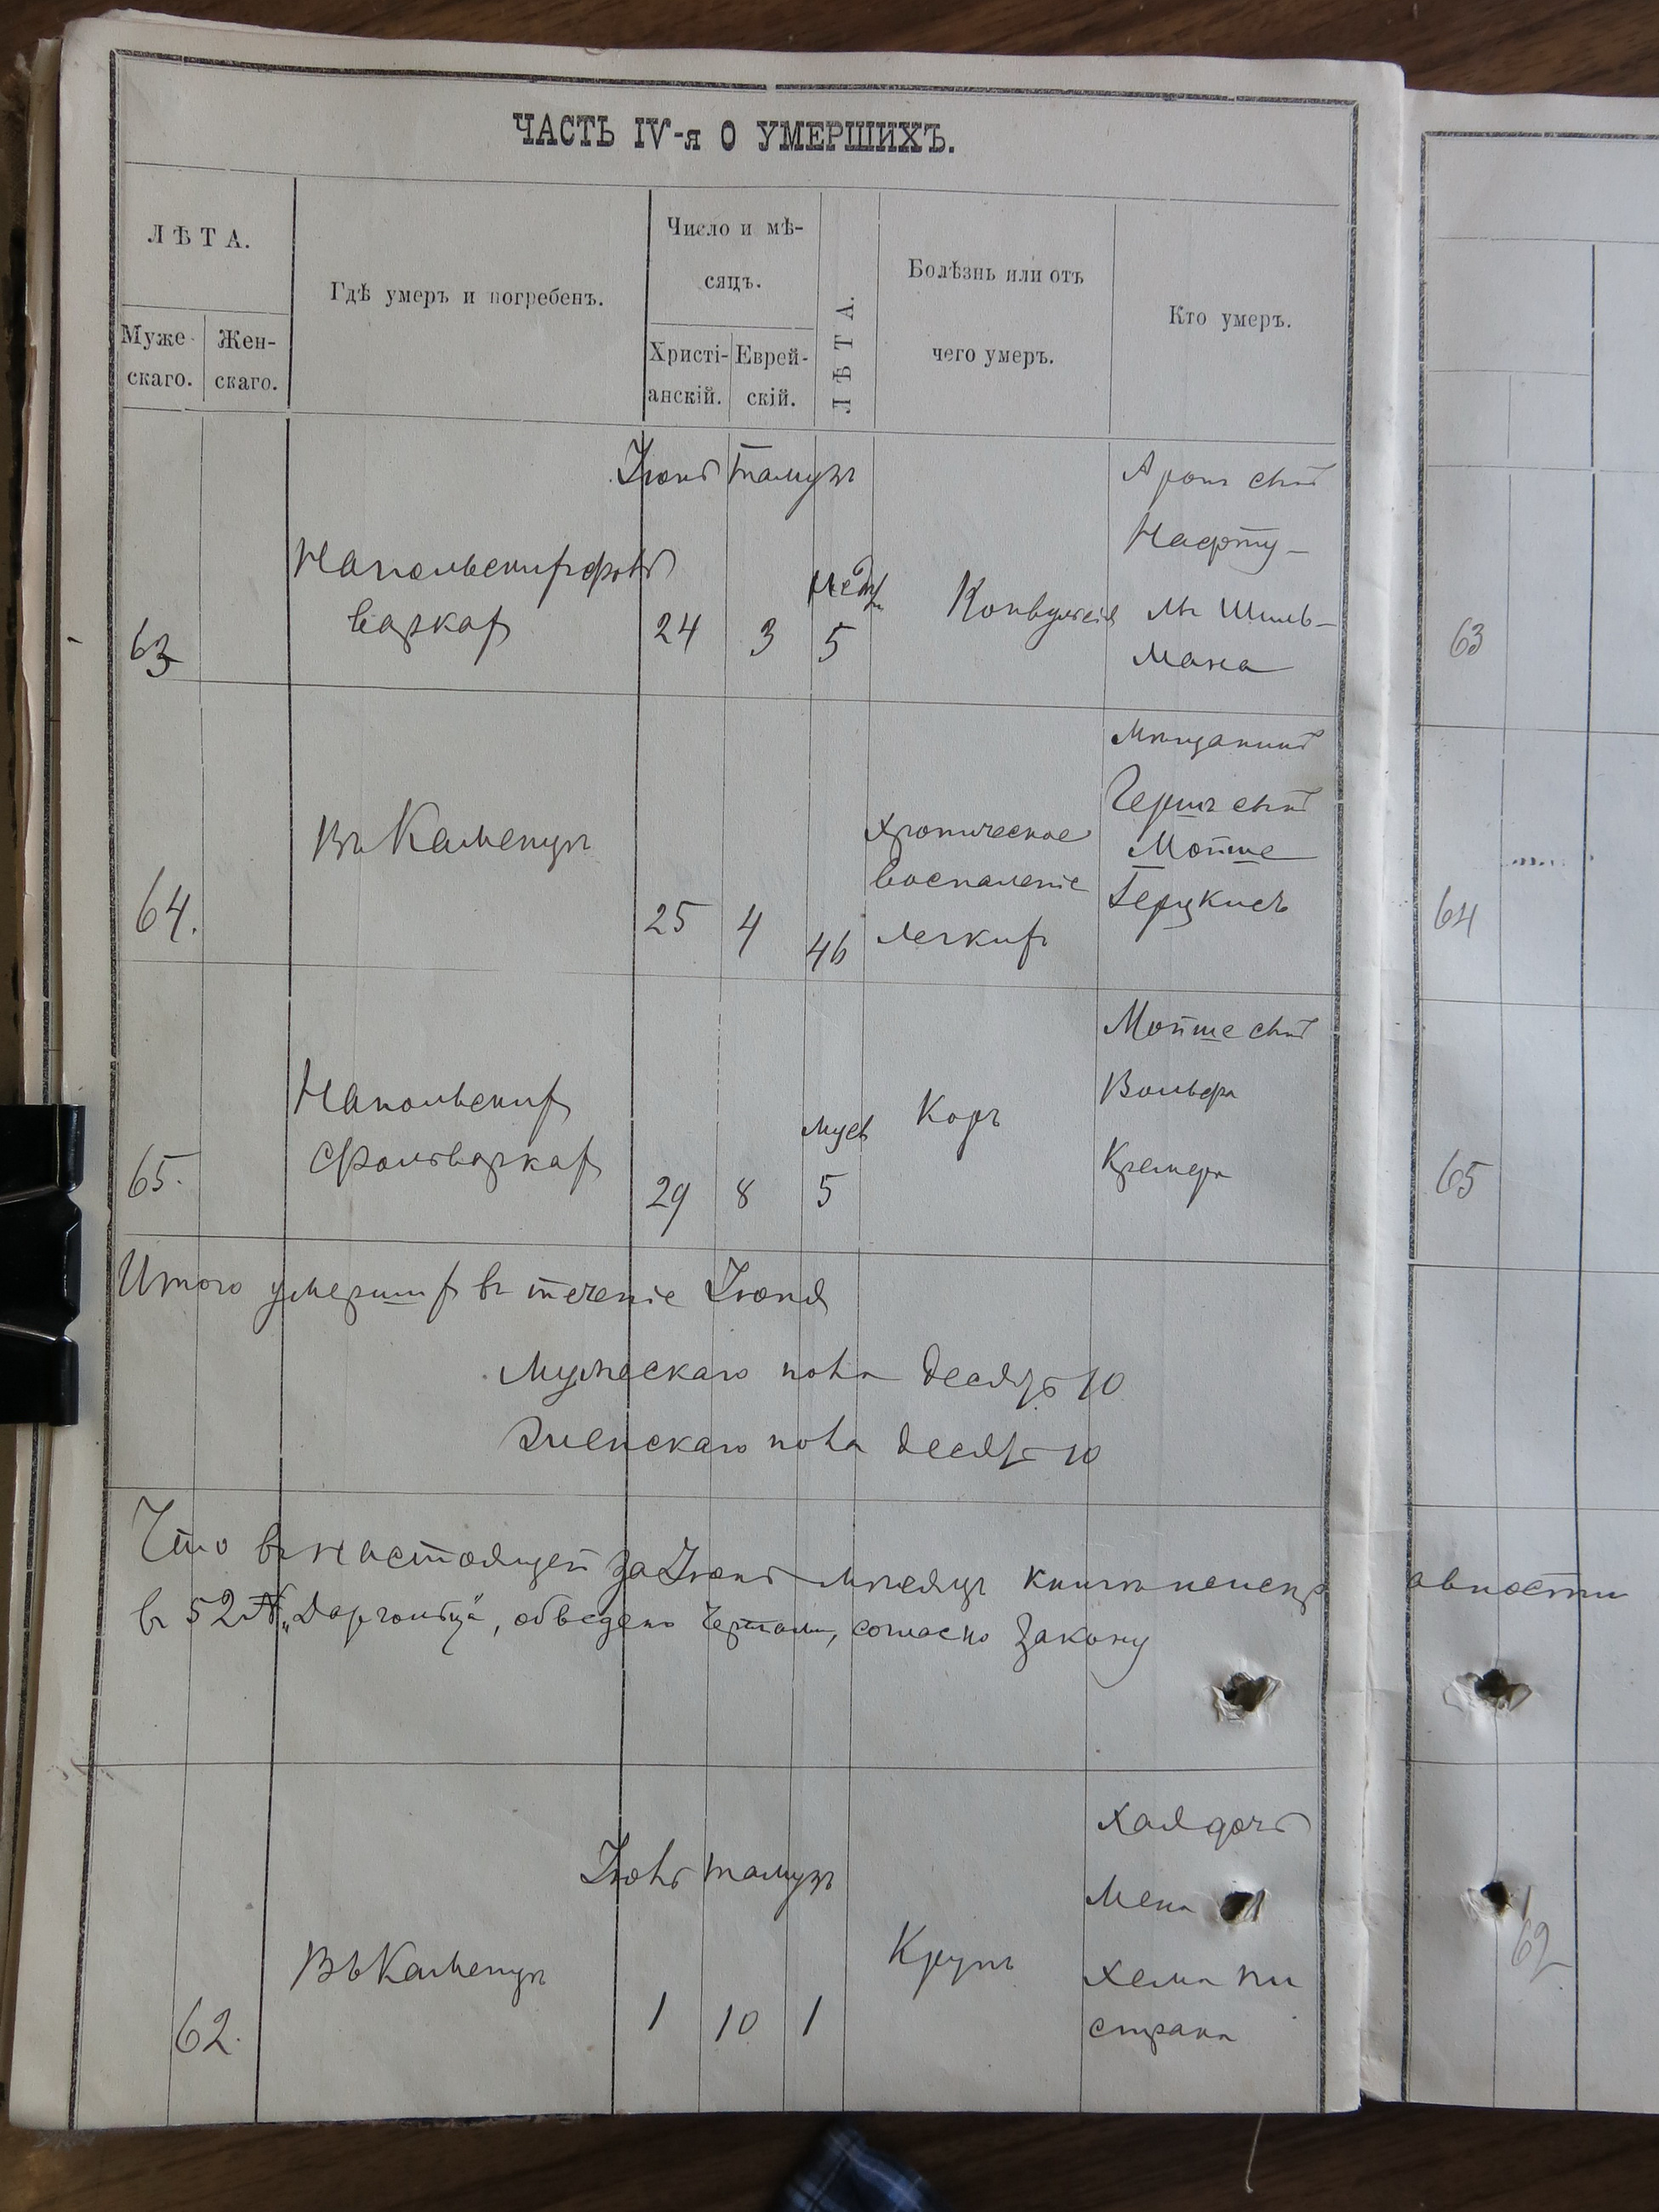 ЧАСТЬ IV-я О УМЕРШИХЪ.
ЛѢТА.
Муже-
скаго.
Жен-
скаго.
Гдѣ умеръ и погребенъ.
Число и мѣ-
сяцъ.
Христі-
анскій.
Еврей-
скій.
ЛѢТА.
Болѣзнь или отъ
чего умеръ.
Кто умеръ.
Іюнь Тамузъ
63
Напольскихъ фоль
варкахъ
24
3
5
Конвульсія
Аронъ сынъ
Нафту-
лы Шиль-
мана
63
64.
Въ Каменцѣ
25
4
46
Хроническое
воспаленіе
легкихъ
Мѣщанинъ
Гершъ сынъ
Мотше
Герцкисъ
64
65.
Напольскихъ
Фольваркахъ
29
8
мѣс
5
Корь
Мотше сынъ
Вольфа
Кремера
65
Итого умершихъ въ теченіе Іюня
Мужескаго пола десять 10
Женскаго пола десять 10
Что въ настоящей за Іюнь мѣсяцъ книгѣ неиспр авности
в 52 №, обведено чертами, согласно закону
Іюль Тамузъ
62.
Въ Каменцѣ
1
10
1
Крупъ
Хая дочь
Хема Пи
страка
62